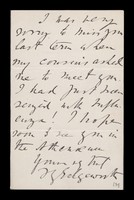 I was very
sorry to miss you
last term when
my cousins asked
me to meet you
I had just been
seized with Influ
enza! I hope
soon to see you in
the Athenaeum
Yours very truly
F Y Edgeworth